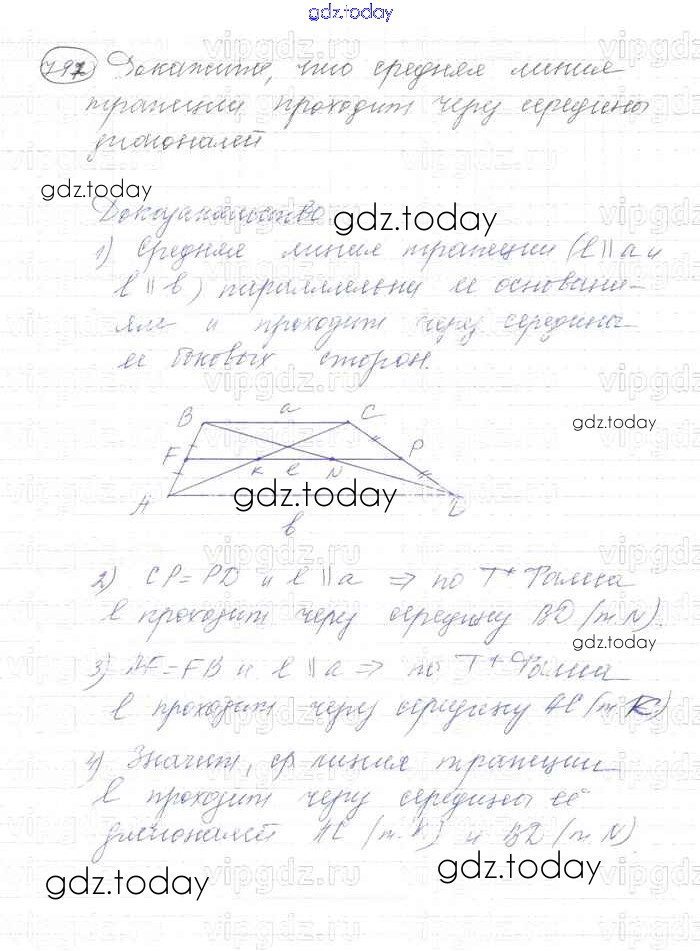 gdz.today
797 Докажите, что средняя линия
трапеции проходит через середины
диагоналей
gdz.today
Доказательство
gdz.today
1) Средняя линия трапеции (l || a и
l || b) параллельна ее основани-
ям и проходит через середины
ее боковых сторон.
B a C
gdz.today
F K l N P
A D
gdz.today
b
2) CP = PD и l || a => по Т+ Фалеса
l проходит через середину BD (т. N).
gdz.today
3) AF = FB и l || a => по Т+ Фалеса
l проходит через середину AC (т. K)
4) Значит, ср линия трапеции
l проходит через середины её
диагоналей AC (т. K) и BD (т. N)
gdz.today
gdz.today